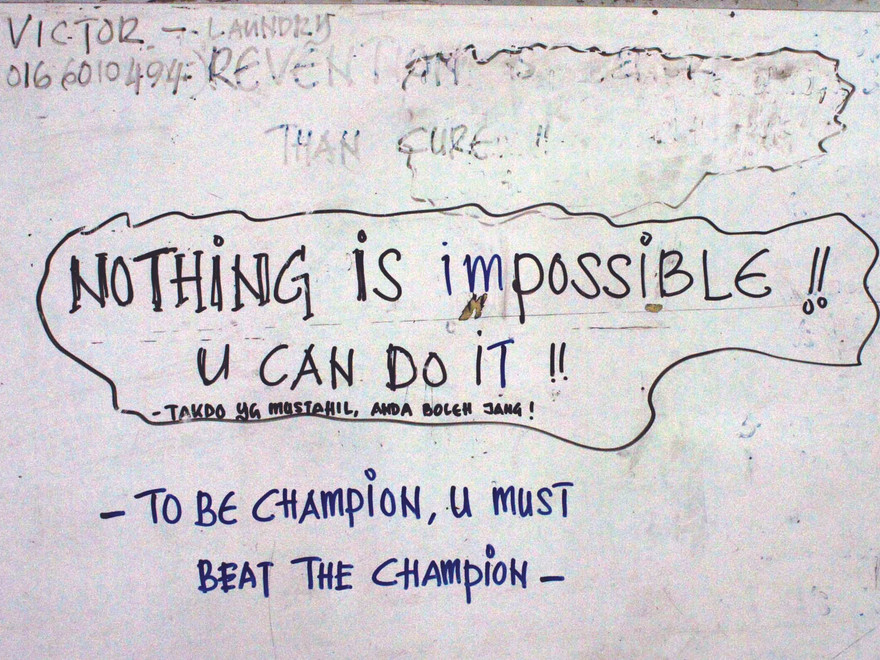 VICTOR - LAUNDRY
016 6010494
REVENTION IS
THAN CURE !!
NOTHING IS imPOSSIBLE !!
U CAN DO IT !!
- TAKDO YG MUSTAHIL, ANDA BOLEH JANG!
- TO BE CHAMPION, U MUST
BEAT THE CHAMPION -